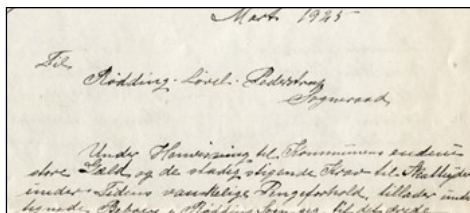 Marts 1925
Til
Rødding-Løvel-Pederstrup
Sogneraad
Under Henvisning til Kommunens endnu
store Gæld og de stadig stigende Krav til Skatteyderne
under Tidens vanskelige Pengeforhold, tillader under-
tegnede Beboere i Rødding Sogn